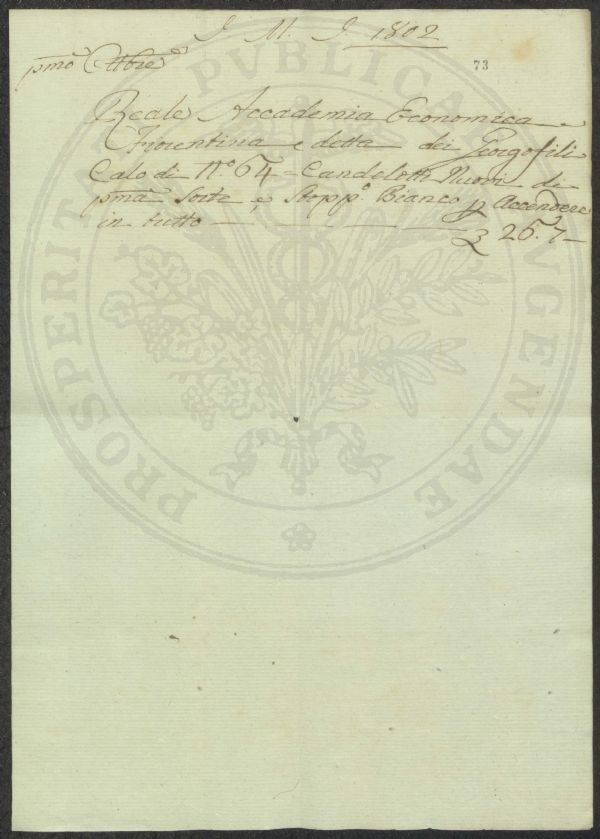 J. M. J. 1802
pmo Ottbre
73
Reale Accademia Economica
Fiorentina e detta dei Georgofili
Calo di No 64 - Candelotti Nuovi di
pma sorte, e Stoppo Bianco p Accendere
in tutto £ 26.7-
PROSPERITATI PVBLICAE AVGENDAE